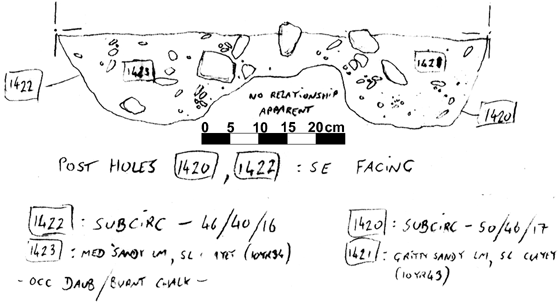 1423
1421
1422
1420
NO RELATIONSHIP
APPARENT
0 5 10 15 20cm
POST HOLES 1420, 1422 : SE FACING
1422 : SUBCIRC - 46/40/16
1423 : MED SANDY LM, SL CLAYEY (10YR34)
- OCC DAUB/BURNT CHALK -
1420 : SUBCIRC - 50/46/17
1421 : GRITTY SANDY LM, SL CLAYEY
(10YR43)